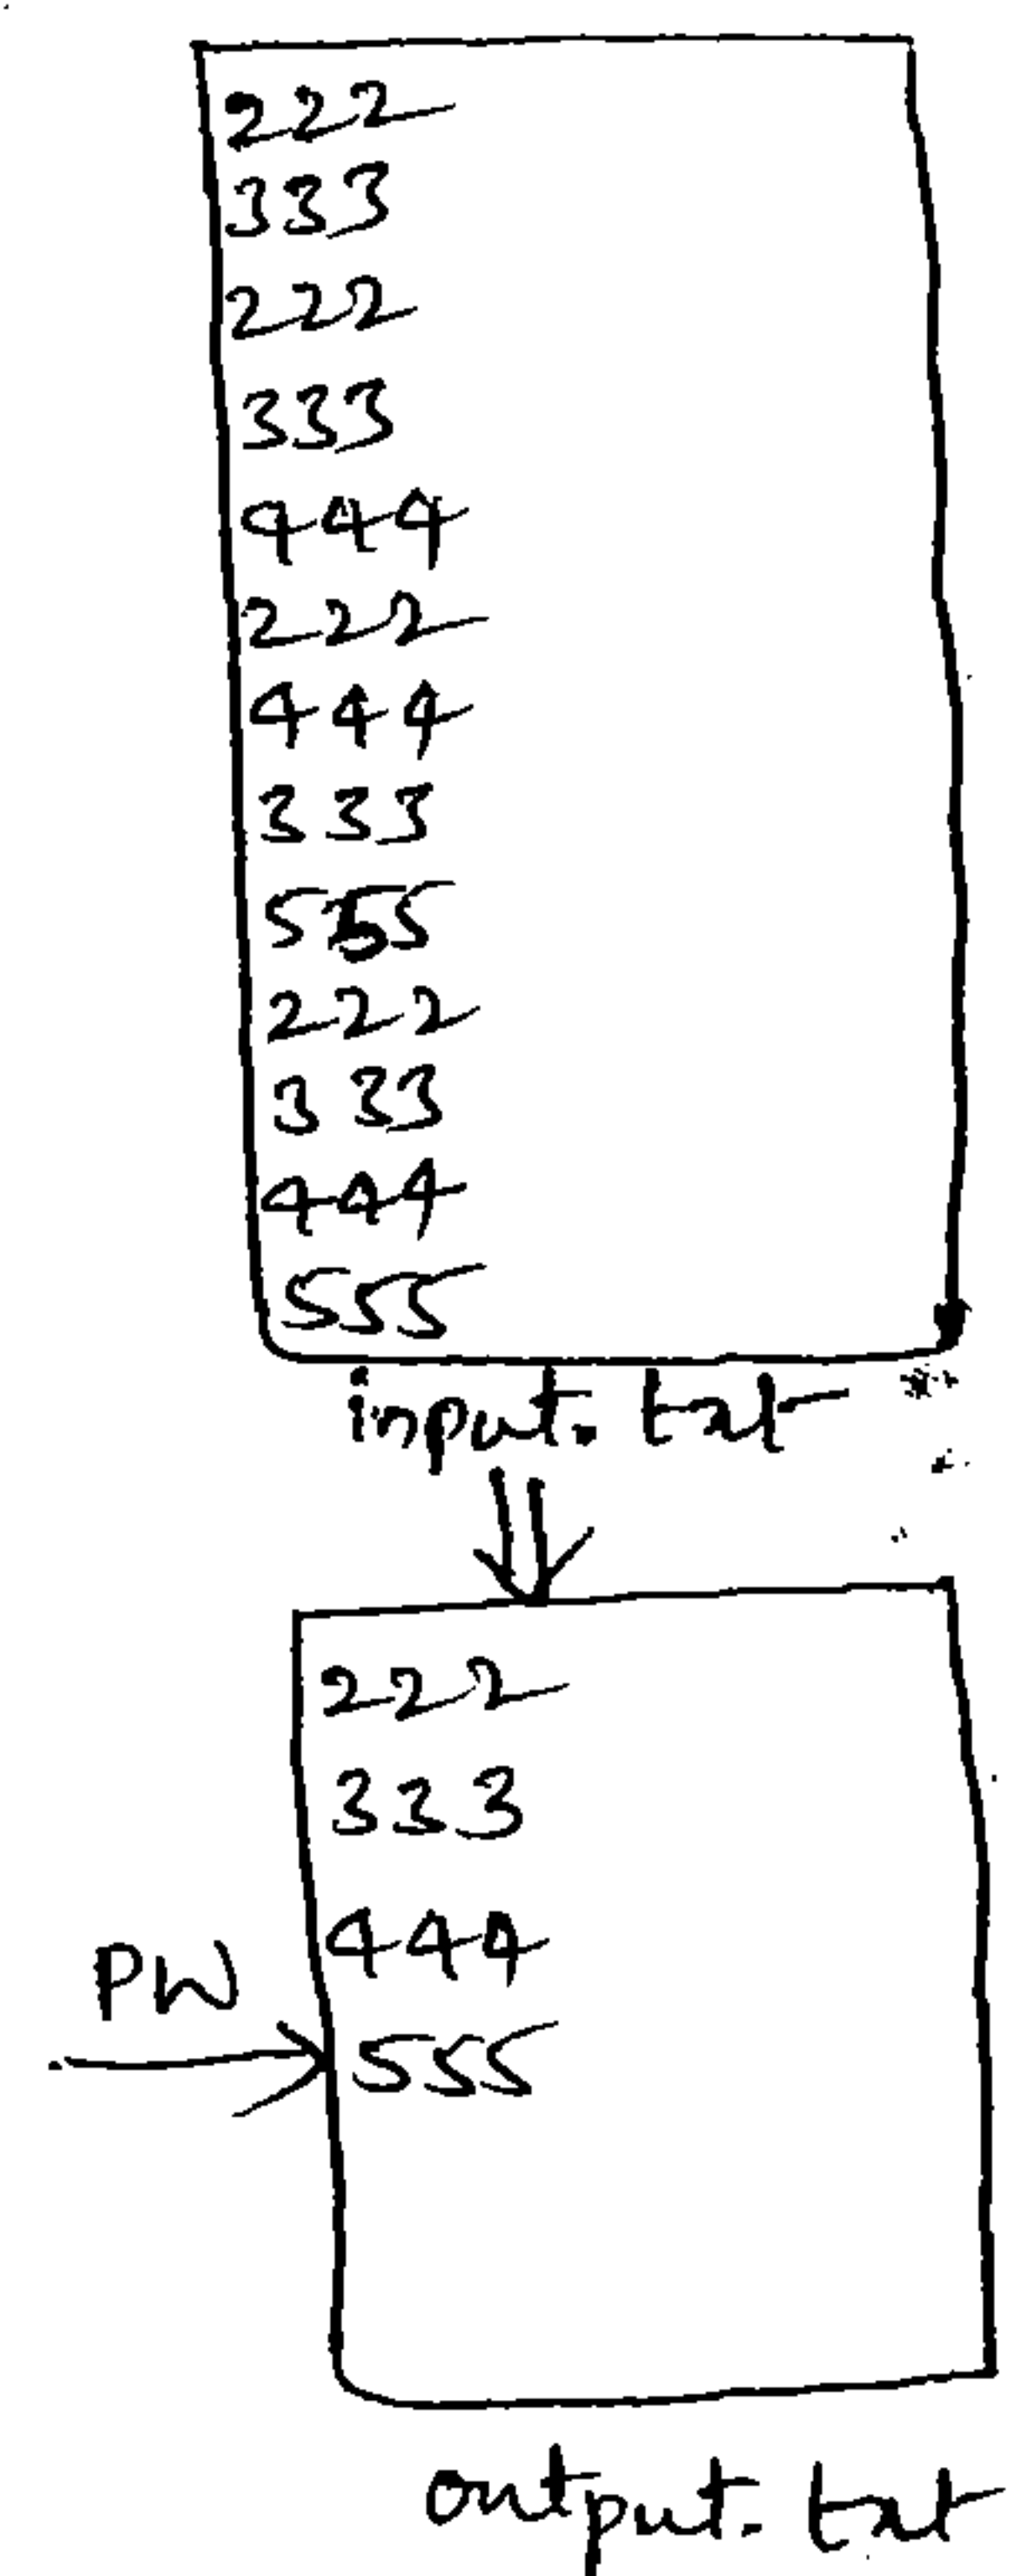 222
333
222
333
444
222
444
333
555
222
333
444
555
input.txt
222
333
444
PW
555
output.txt